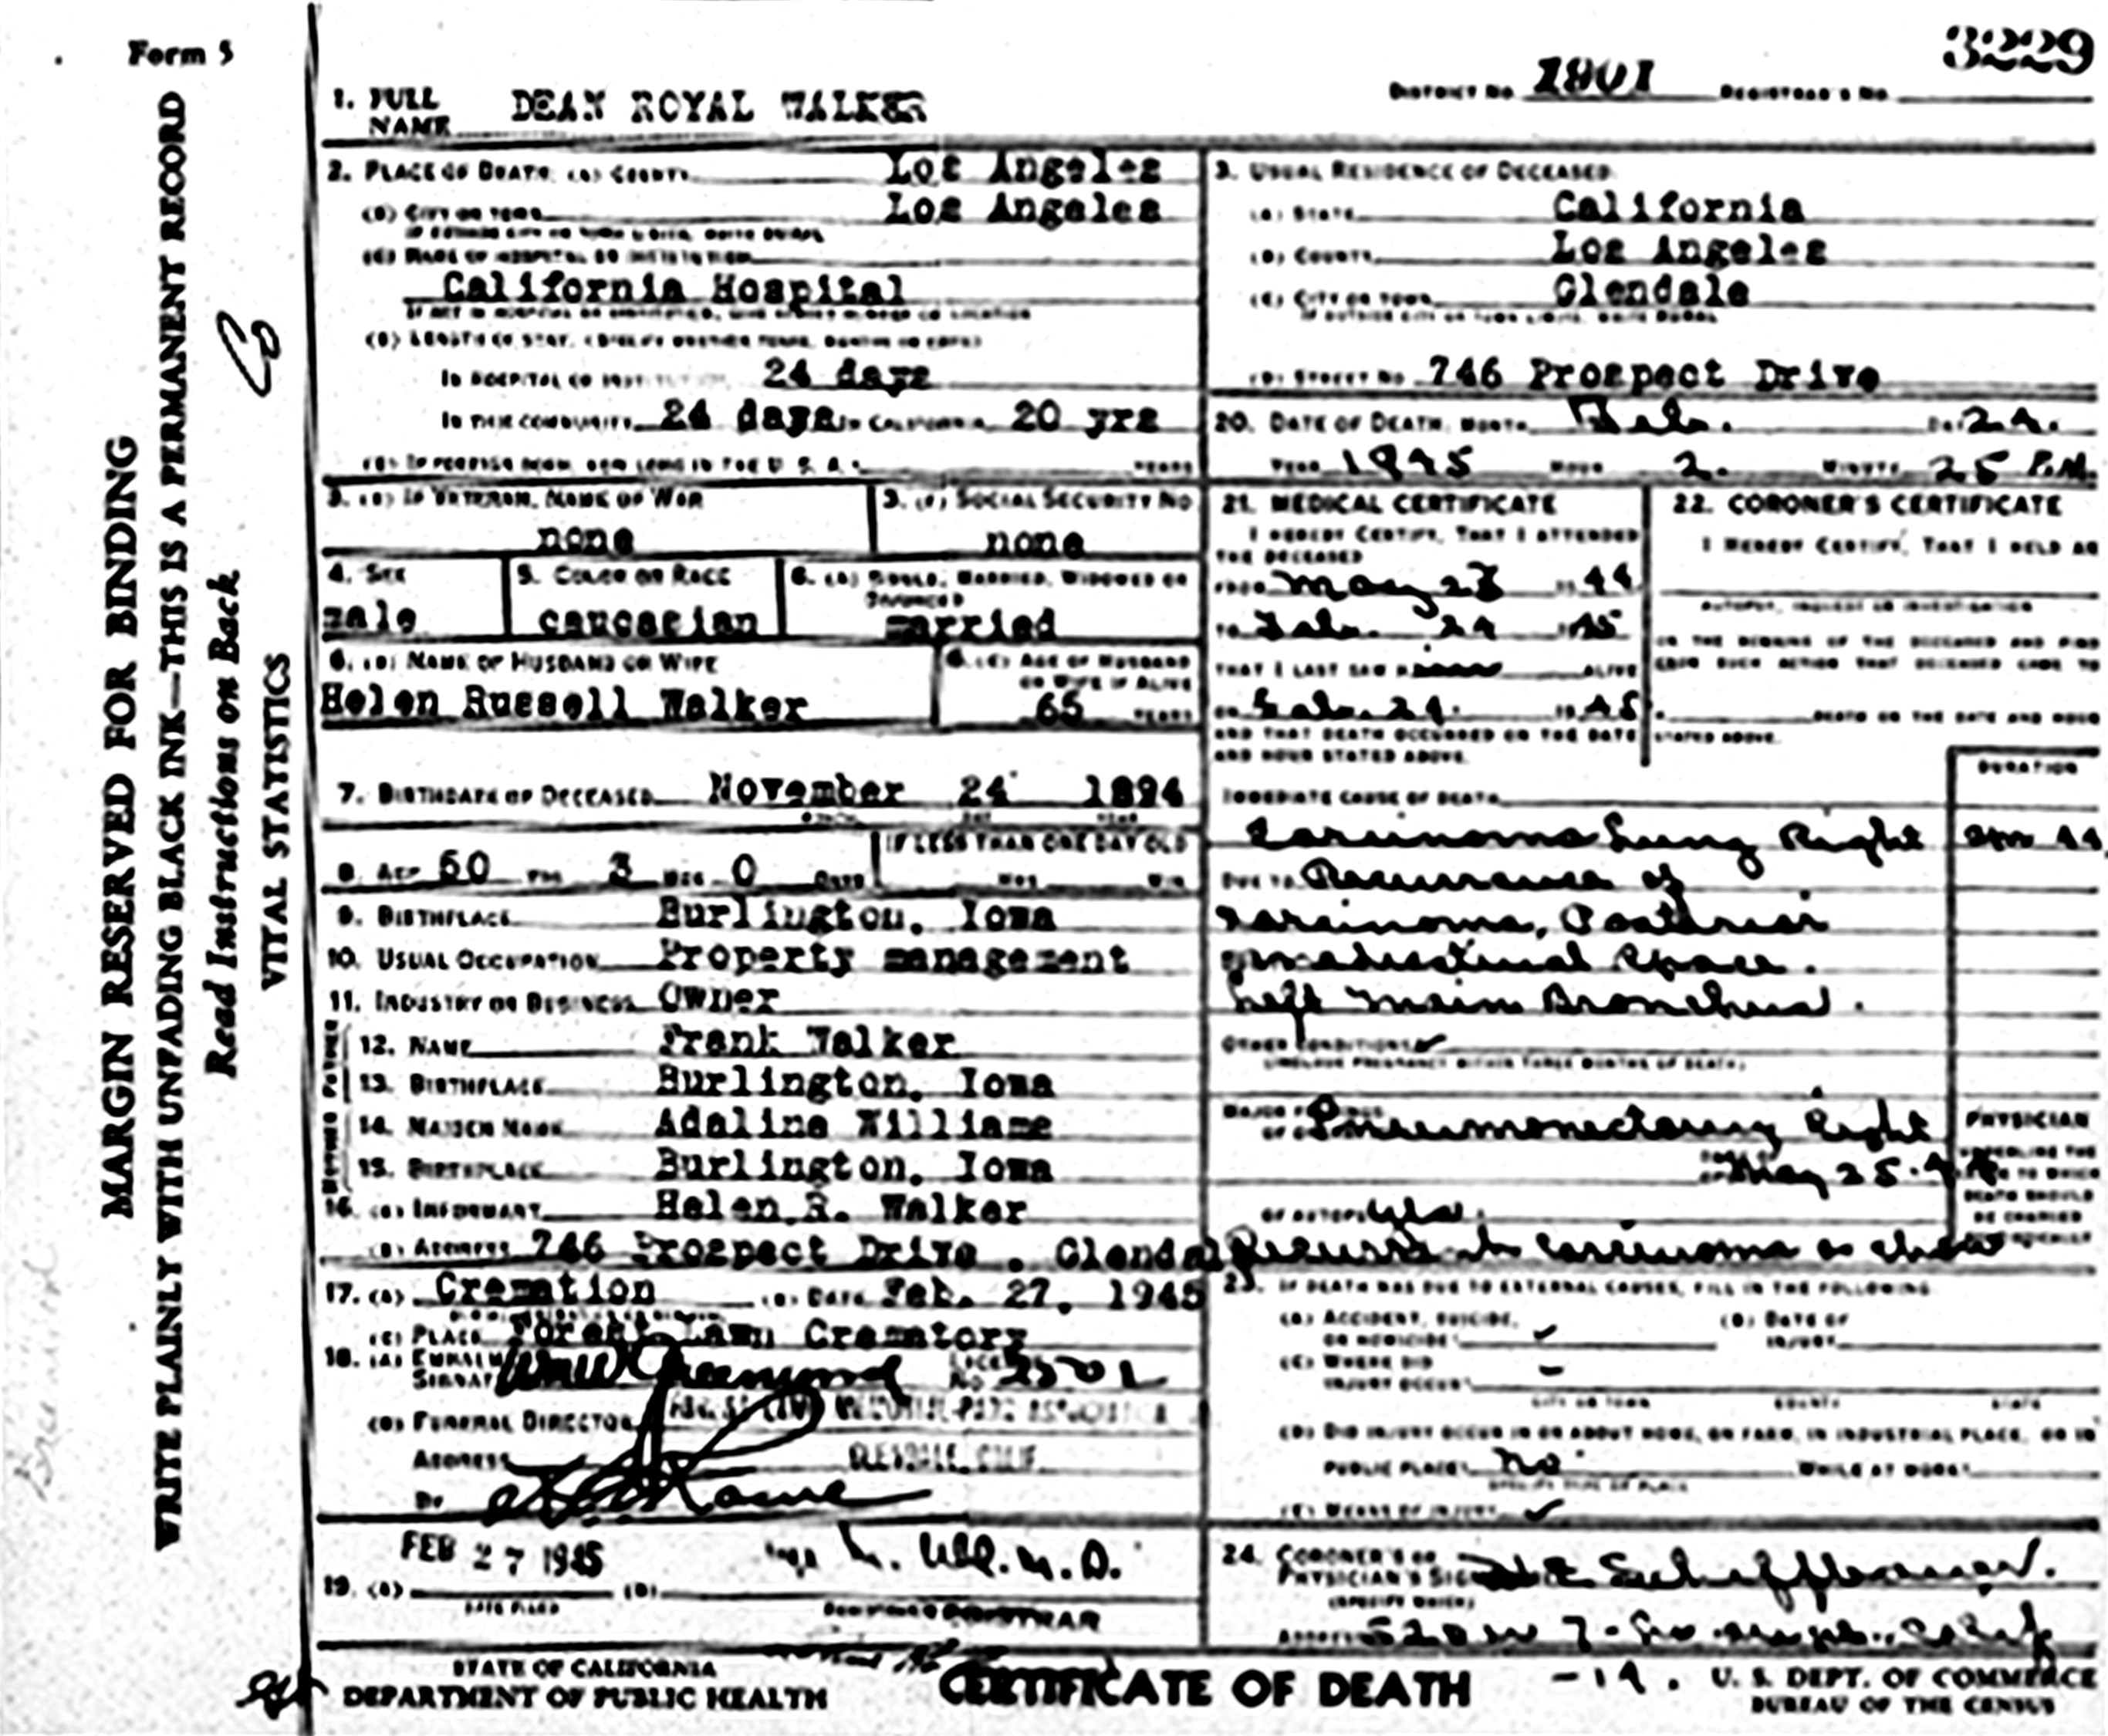 Form 5
3229
DISTRICT NO. 1801 REGISTRAR'S NO.
1. FULL NAME DEAN ROYAL WALKER
MARGIN RESERVED FOR BINDING
WRITE PLAINLY WITH UNFADING BLACK INK—THIS IS A PERMANENT RECORD
Read Instructions on Back
VITAL STATISTICS
2. PLACE OF DEATH: (A) COUNTY Los Angeles
(B) CITY OR TOWN Los Angeles
IF OUTSIDE CITY OR TOWN LIMITS, WRITE RURAL
(C) NAME OF HOSPITAL OR INSTITUTION
California Hospital
IF NOT IN HOSPITAL OR INSTITUTION, GIVE STREET NUMBER OR LOCATION
(D) LENGTH OF STAY: (SPECIFY WHETHER YEARS, MONTHS OR DAYS)
IN HOSPITAL OR INSTITUTION 24 days
IN THIS COMMUNITY 24 days IN CALIFORNIA 20 yrs
(E) IF FOREIGN BORN, HOW LONG IN THE U. S. A.? YEARS
3. (E) IF VETERAN, NAME OF WAR
none
3. (F) SOCIAL SECURITY NO
none
4. SEX
male
5. COLOR OR RACE
caucasian
6. (A) SINGLE, MARRIED, WIDOWED OR DIVORCED
married
6. (B) NAME OF HUSBAND OR WIFE
Helen Russell Walker
6. (C) AGE OF HUSBAND OR WIFE IF ALIVE
65 YEARS
7. BIRTHDATE OF DECEASED November 24 1894
MONTH DAY YEAR
8. AGE 50 YRS 3 MOS 0 DAYS
IF LESS THAN ONE DAY OLD
HRS MIN
9. BIRTHPLACE Burlington, Iowa
10. USUAL OCCUPATION Property management
11. INDUSTRY OR BUSINESS Owner
FATHER
12. NAME Frank Walker
13. BIRTHPLACE Burlington, Iowa
MOTHER
14. MAIDEN NAME Adaline Williams
15. BIRTHPLACE Burlington, Iowa
16. (A) INFORMANT Helen R. Walker
(B) ADDRESS 746 Prospect Drive, Glendale
17. (A) Cremation (B) DATE Feb. 27, 1945
(C) PLACE Forest Lawn Crematory
18. (A) EMBALMER'S SIGNATURE LICENSE NO
(B) FUNERAL DIRECTOR FOREST LAWN MEMORIAL-PARK ASSOCIATION
ADDRESS GLENDALE, CALIF.
BY
FEB 27 1945
19. (A) (B)
DATE FILED REGISTRAR
3. USUAL RESIDENCE OF DECEASED
(A) STATE California
(B) COUNTY Los Angeles
(C) CITY OR TOWN Glendale
IF OUTSIDE CITY OR TOWN LIMITS, WRITE RURAL
(D) STREET NO 746 Prospect Drive
20. DATE OF DEATH: MONTH Feb. DAY 24.
YEAR 1945 HOUR 2. MINUTE 25 P.M.
21. MEDICAL CERTIFICATE
I HEREBY CERTIFY, THAT I ATTENDED THE DECEASED
FROM May 23 19 44
TO Feb. 24 19 45
THAT I LAST SAW him ALIVE
ON Feb. 24. 19 45
AND THAT DEATH OCCURRED ON THE DATE
AND HOUR STATED ABOVE.
22. CORONER'S CERTIFICATE
I HEREBY CERTIFY, THAT I HELD AN
AUTOPSY, INQUEST OR INVESTIGATION
ON THE REMAINS OF THE DECEASED AND FIND
FROM SUCH ACTION THAT DECEASED CAME TO
DEATH ON THE DATE AND HOUR
STATED ABOVE.
DURATION
IMMEDIATE CAUSE OF DEATH
Carcinoma Lung Right 44
DUE TO Recurrence of
Carcinoma, Posterior
mediastinal space.
Left Main Bronchus.
OTHER CONDITIONS
(INCLUDE PREGNANCY WITHIN THREE MONTHS OF DEATH)
MAJOR FINDINGS:
OF OPERATIONS Pneumonectomy Right
DATE OF May 25. 44
OF AUTOPSY yes
Recurrence carcinoma as above
PHYSICIAN
UNDERLINE THE CAUSE TO WHICH DEATH SHOULD BE CHARGED STATISTICALLY
23. IF DEATH WAS DUE TO EXTERNAL CAUSES, FILL IN THE FOLLOWING
(A) ACCIDENT, SUICIDE, OR HOMICIDE?
(B) DATE OF INJURY
(C) WHERE DID INJURY OCCUR?
CITY OR TOWN COUNTY STATE
(D) DID INJURY OCCUR IN OR ABOUT HOME, ON FARM, IN INDUSTRIAL PLACE, OR IN
PUBLIC PLACE? no WHILE AT WORK?
SPECIFY TYPE OF PLACE
(E) MEANS OF INJURY
24. CORONER'S OR PHYSICIAN'S SIGNATURE
(SPECIFY WHICH)
ADDRESS
STATE OF CALIFORNIA
DEPARTMENT OF PUBLIC HEALTH
CERTIFICATE OF DEATH
U. S. DEPT. OF COMMERCE
BUREAU OF THE CENSUS